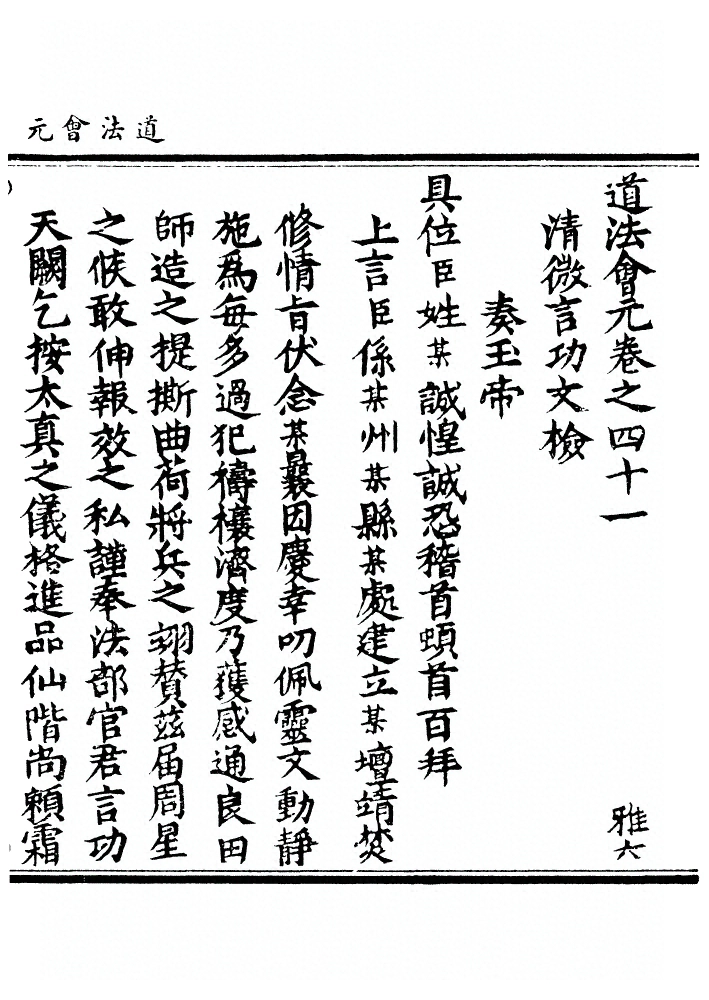 道法會元
道法會元卷之四十一
雅六
清微言功文檢
奏玉帝
具位臣姓某誠惶誠恐稽首頓首百拜
上言臣係某州某縣某處建立某壇靖焚
修情旨伏念某曩因慶幸叨佩靈文動靜
施爲每多過犯禱禳濟度乃獲感通良田
師造之提撕曲荷將兵之翊賛茲届周星
之候敢伸報效之私謹奉法部官君言功
天闕乞按太真之儀格進品仙階尚賴霜